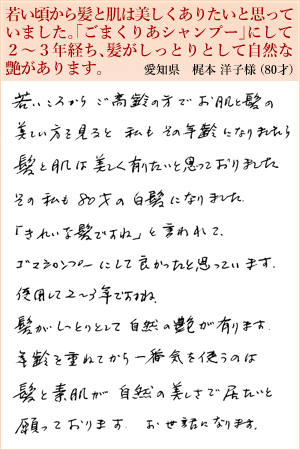 若い頃から髪と肌は美しくありたいと思って
いました。「ごまくりあシャンプー」にして
２～３年経ち、髪がしっとりとして自然な
艶があります。 愛知県 梶本 洋子様（80才）
若いころから ご高齢の方で お肌と髪の
美しい方を見ると 私も その年齢になりましたら
髪と肌は美しく有りたいと思っております
その私も 80才の白髪になりました.
「きれいな髪ですね」と言われて、
ゴマシャンプーにして良かったと思っています.
使用して2〜3年ですね.
髪がしっとりとして自然の艶が有ります.
年齢を重ねてから一番気を使うのは
髪と素肌が 自然の美しさで居たいと
願っております. お世話になります.